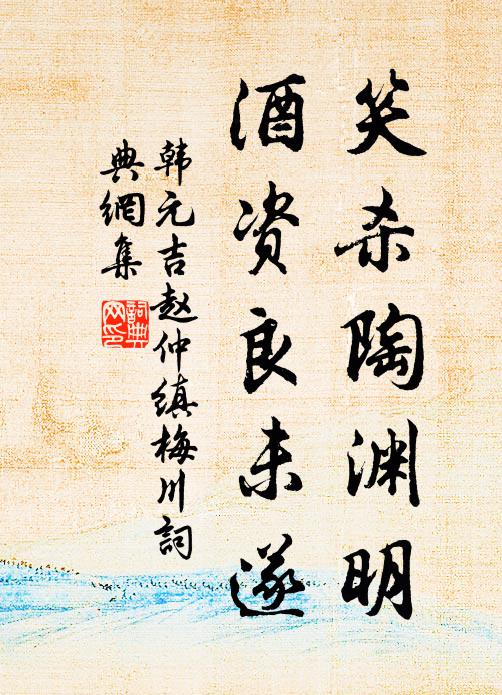 笑杀陶渊明
酒资良未遂
韩元吉赵仲缜梅川词
典網集
詞典
网印